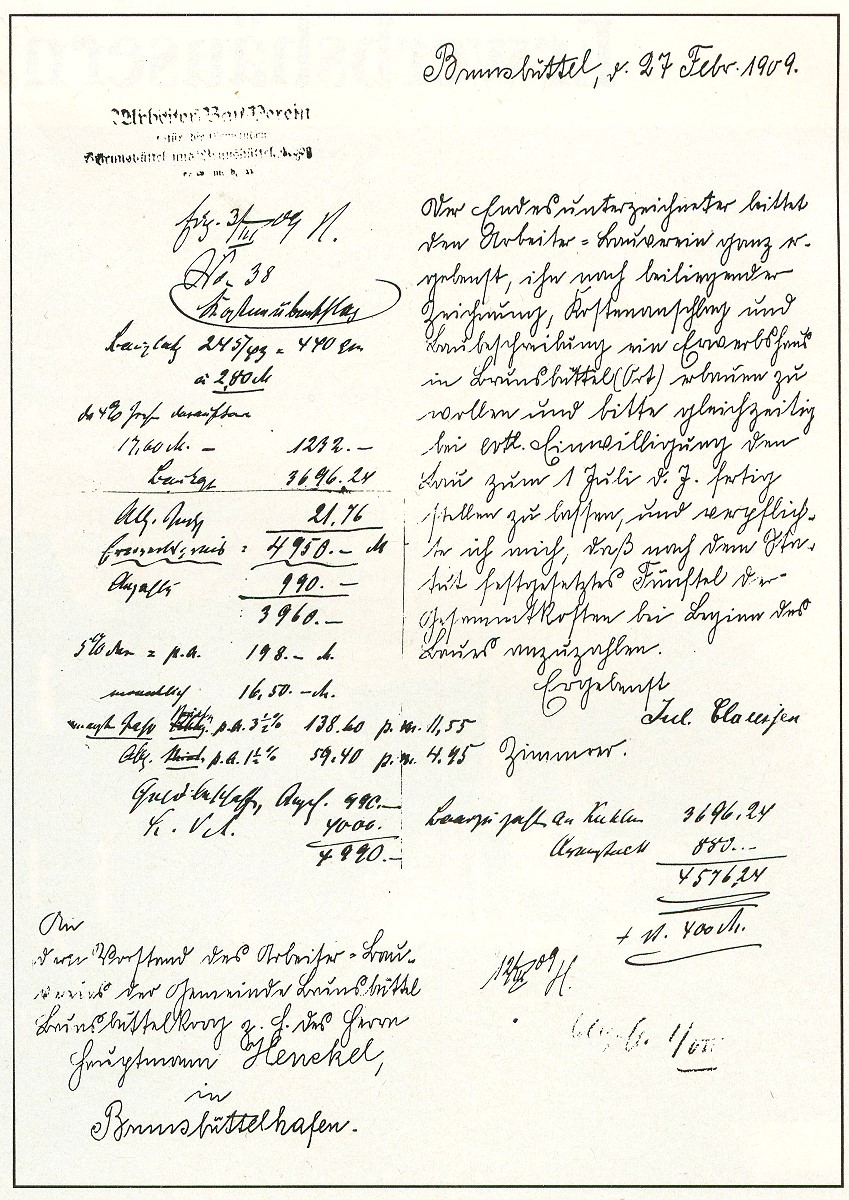 Brunsbüttel, d. 27 Febr. 1909.
Arbeiter-Bau-Verein
für die Gemeinden
Brunsbüttel und Brunsbüttel
3/III 09 H.
No. 38
Kostenüberschlag
Bauplatz 245/43 = 440 qm
à 2,80 M
17,60 M. — 1232.—
Baukap 3696.24
21,76
= 4950.— M
Anzahlg 990.—
3960.—
5% = p.a. 198.— M.
monatlich 16,50.—M.
p.a. 3½% 138.60 p.m. 11,55
p.a. 1½% 59.40 p.m. 4.95
990.—
4000.—
4990.—
Der Endesunterzeichneter bittet
den Arbeiter=Bauverein ganz er-
gebenst, ihn nach beiliegender
Zeichnung, Kostenanschlag und
Baubeschreibung ein Erwerbshaus
in Brunsbüttel(Ort) erbauen zu
wollen und bitte gleichzeitig
bei evtl. Einwilligung den
Bau zum 1 Juli d. J. fertig
stellen zu lassen, und verpflich-
te ich mich, daß nach dem Sta-
tut festgesetztes Fünftel der
Gesammtkosten bei Beginn des
Baues anzuzahlen.
Ergebenst
Jul. Claussen
Zimmerer.
3696.24
880.—
4576,24
+ 400 M.
12/III 09 H.
An
dem Vorstand des Arbeiter=Bau-
vereins der Gemeinde Brunsbüttel
Brunsbüttelkoog z. H. des Herrn
Hauptmann Henckel,
in
Brunsbüttelhafen.